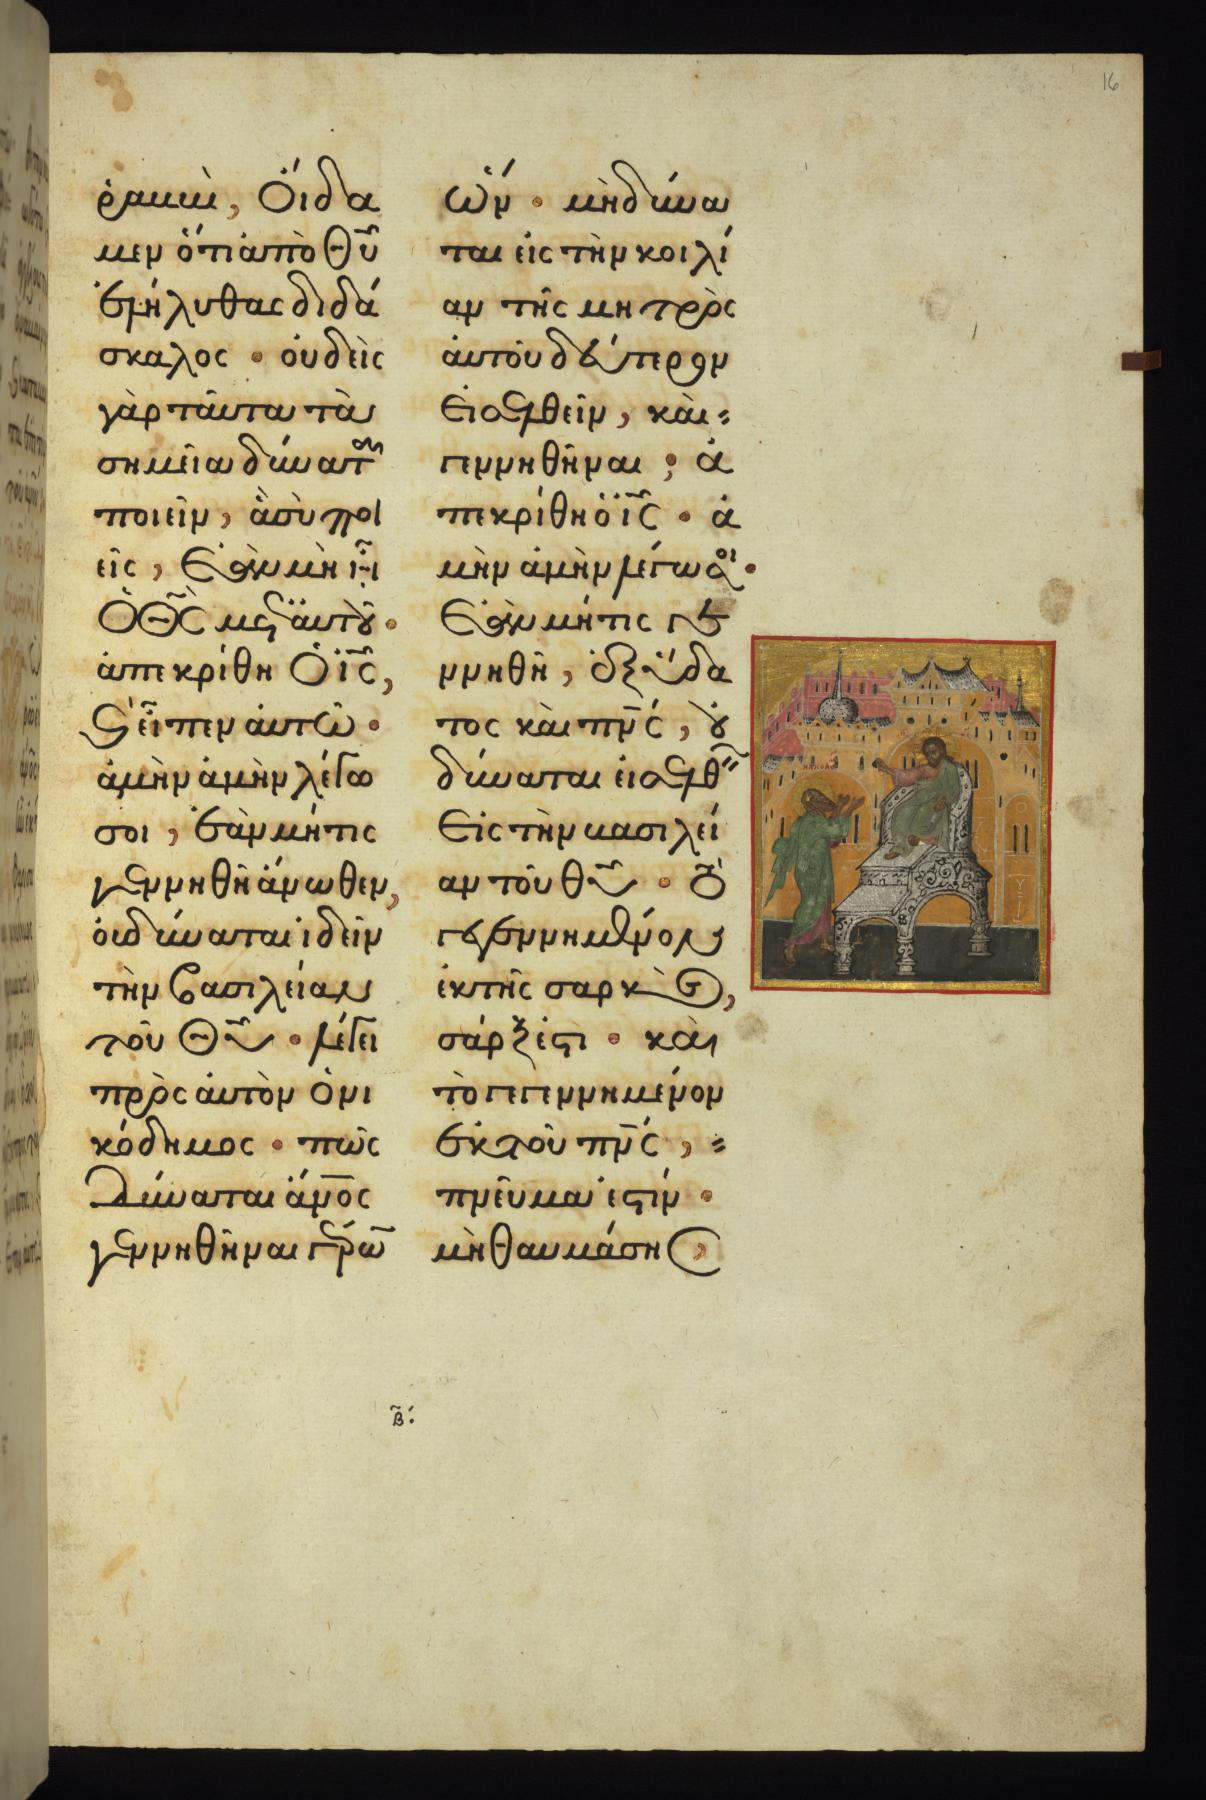 16
ῥαββὶ, Οἴδα
μεν ὅτι ἀπὸ Θῦ
ἐλήλυθας διδά
σκαλος · οὐδεὶς
γὰρ ταῦτα τὰ
σημεῖα δύναται
ποιεῖν, ἃ σὺ ποι
εῖς, Ἐὰν μὴ ἦ
Ὁ Θς μετ' αὐτοῦ ·
ἀπεκρίθη Ὁ ις,
καὶ εἶπεν αὐτῶ ·
ἀμὴν ἀμὴν λέγω
σοι, ἐὰν μή τις
γεννηθῆ ἄνωθεν,
οὐ δύναται ἰδεῖν
τὴν βασιλείαν
τοῦ Θυ · λέγει
πρὸς αὐτὸν ὁ νι
κόδημος · πῶς
Δύναται ἄνος
γεννηθῆναι γέρω
ὤν · μὴ δύνα
ται εἰς τὴν κοιλί
αν τῆς μητρὸς
αὐτοῦ δεύτερον
Εἰσελθεῖν, καὶ
γεννηθῆναι; ἀ
πεκρίθη ὁ ις · ἀ
μὴν ἀμὴν λέγω σοι ·
Ἐὰν μή τις γε
ννηθῆ, ἐξ ὕδα
τος καὶ πνς, οὐ
δύναται εἰσελθεῖν
Εἰς τὴν βασιλεί
αν τοῦ θυ · Τὸ
γεγεννημένον
ἐκ τῆς σαρκὸς,
σάρξ ἐστι · καὶ
τὸ γεγεννημένον
ἐκ τοῦ πνς,
πνεῦμα ἐστίν ·
μὴ θαυμάσης,
β: